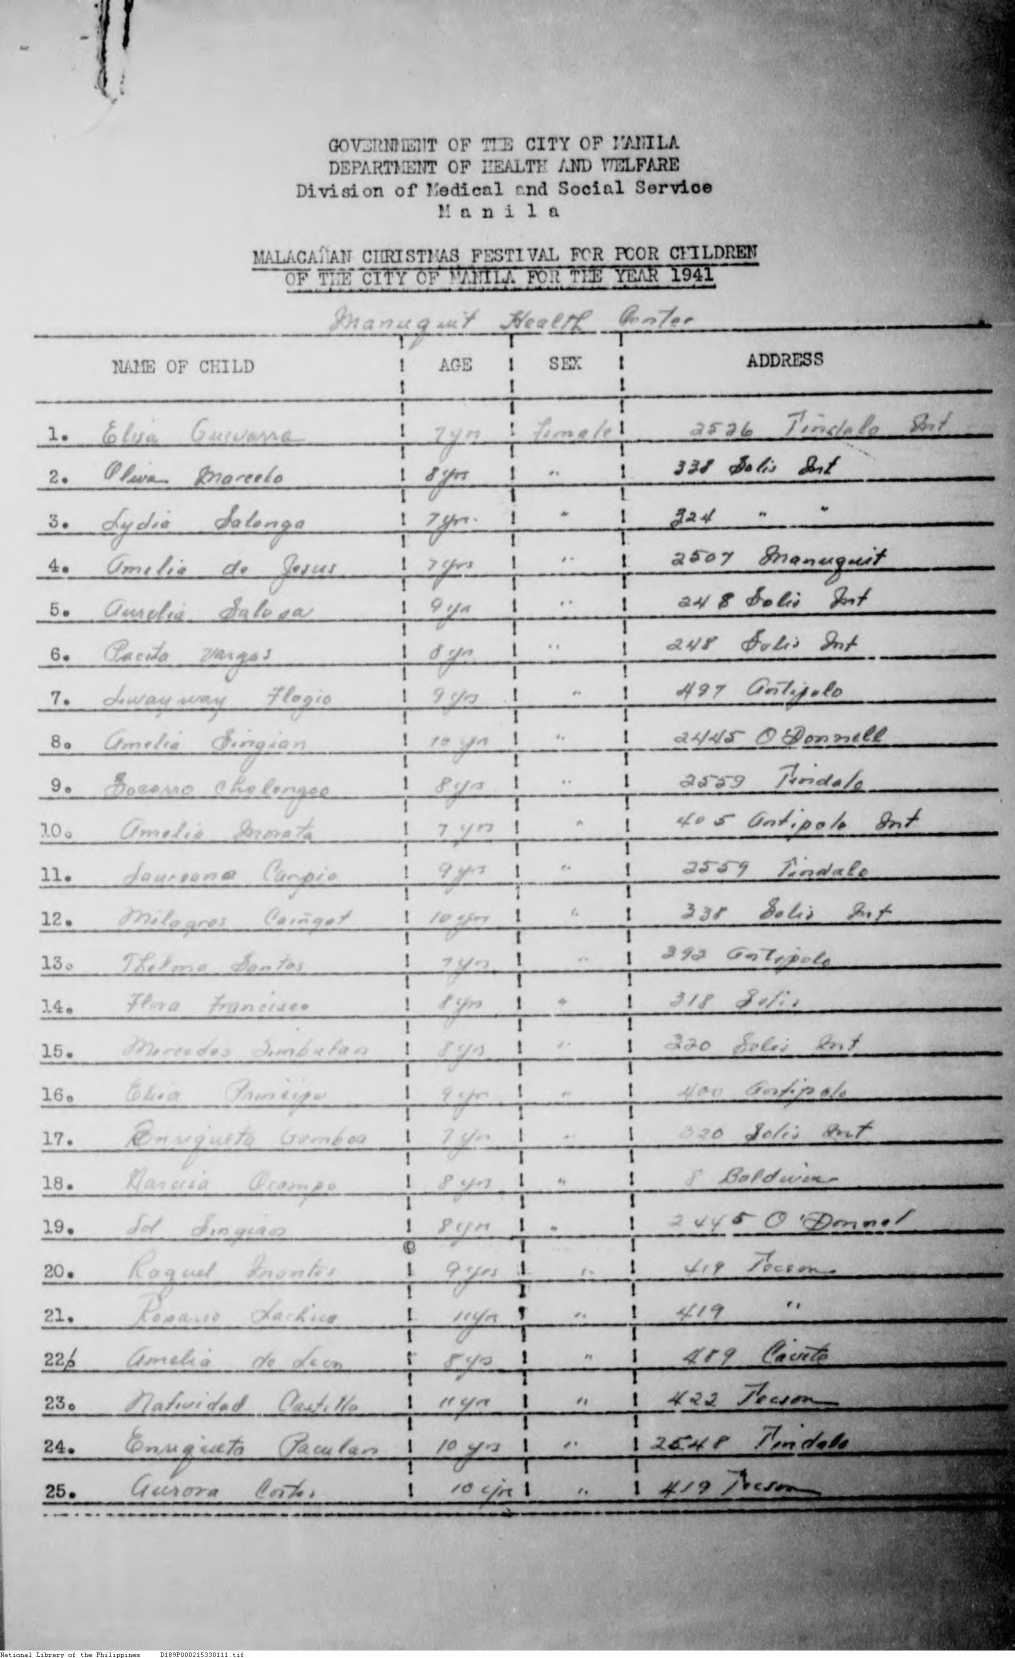 GOVERNMENT OF THE CITY OF MANILA
DEPARTMENT OF HEALTH AND WELFARE
Division of Medical and Social Service
M a n i l a
MALACAÑAN CHRISTMAS FESTIVAL FOR POOR CHILDREN
OF THE CITY OF MANILA FOR THE YEAR 1941
Manuguit Health Center
NAME OF CHILD ! AGE ! SEX ! ADDRESS
1. Elisa Guevarra ! 7 yrs ! female ! 2526 Tindalo Int
2. Oliva Marcelo ! 8 yrs ! " ! 338 Solis Int
3. Lydia Salonga ! 7 yrs. ! " ! 324 " "
4. Amelia de Jesus ! 7 yrs ! " ! 2507 Manuguit
5. Aurelia ! 9 yrs ! " ! 248 Solis Int
6. Pacita Vargas ! 8 yrs ! " ! 248 Solis Int
7. Liwayway Elogio ! 9 yrs ! " ! 497 Antipolo
8. Amelia Singian ! 10 yrs ! " ! 2445 O'Donnell
9. Socorro ! 8 yrs ! " ! 2559 Tindalo
10. Amelia Morata ! 7 yrs ! " ! 405 Antipolo Int
11. Laureana Carpio ! 9 yrs ! " ! 2559 Tindalo
12. Milagros ! 10 yrs ! " ! 338 Solis Int
13. Thelma Santos ! 7 yrs ! " ! 392 Antipolo
14. Flora Francisco ! 8 yrs ! " ! 318 Solis
15. Mercedes Simbulan ! 8 yrs ! " ! 320 Solis Int
16. Elisa Principe ! 9 yrs ! " ! 400 Antipolo
17. Enriqueta Gamboa ! 7 yrs ! " ! 320 Solis Int
18. Narcisa Ocampo ! 8 yrs ! " ! 8 Baldwin
19. Sol Singian ! 8 yrs ! " ! 2445 O'Donnel
20. Raquel Montes ! 9 yrs ! " ! 419 Tecson
21. Rosario Lachica ! 11 yrs ! " ! 419 "
22. Amelia de Leon ! 8 yrs ! " ! 489 Cavite
23. Natividad Castillo ! 11 yrs ! " ! 422 Tecson
24. Enriqueta Paculan ! 10 yrs ! " ! 2548 Tindalo
25. Aurora Cortes ! 10 yrs ! " ! 419 Tecson
National Library of the Philippines D189P000215330111.tif